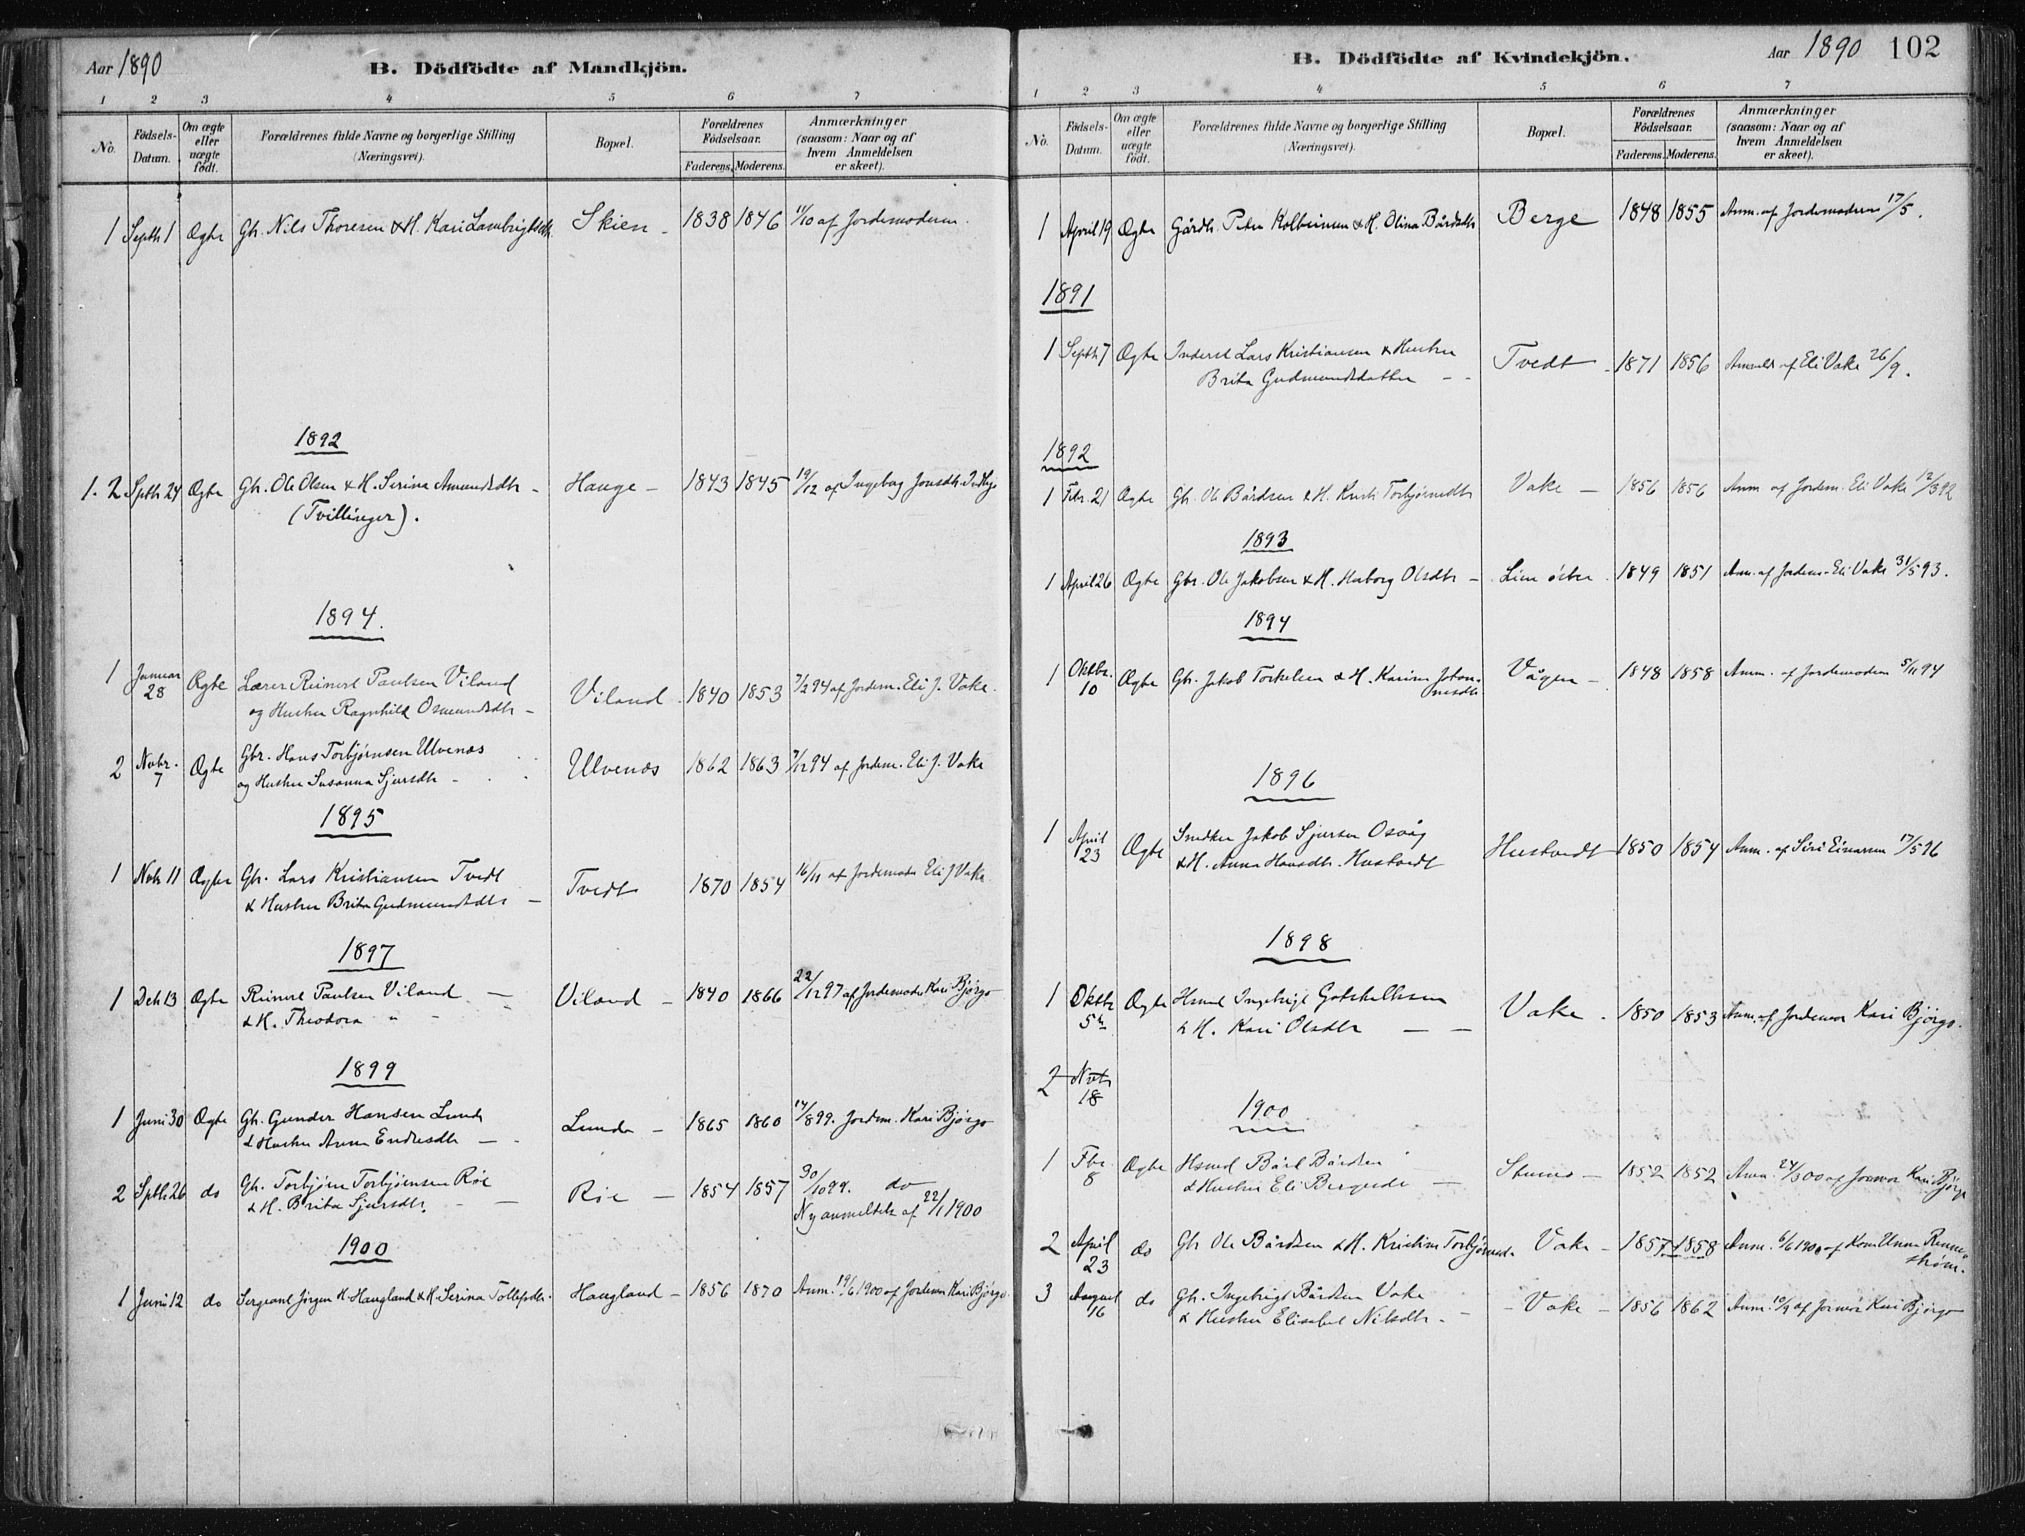 Aar 1890
B. Dödfödte af Mandkjön.
1 2 3 4 5 6 7
No.
Födsels-Datum.
Om ægte eller uægte födt.
Forældrenes fulde Navne og borgerlige Stilling (Næringsvei).
Bopæl.
Forældrenes Födselsaar.
Faderens. Moderens.
Anmærkninger (saasom: Naar og af hvem Anmeldelsen er skeet).
1 Septb 1 Ægte Gbr. Nils Thoresen & H. Kari Lambrigtsdtr Skien - 1838 1846 11/10 af Jordemoderen.
1892
1. 2 Sptb 24 Ægte Gbr. Ole Olsen & H. Serina Amundsdtr - Hauge - 1843 1845 19/12 af Ingebor Jonsdtr
(Tvillinger).
1894.
1 Januar 28 Ægte Lærer Reinert Paulsen Viland
og Hustru Ragnhild Osmundsdtr - Viland 1840 1853 7/2 94 af Jordem. Eli J. Vake.
2 Nobr. 7 Ægte Gbr. Hans Torbjørnsen Ulvenæs
og Hustru Susanna Sjursdtr - Ulvenæs 1862 1863 7/12 94 af Jordem. Eli J. Vake
1895
1 Nobr 11 Ægte Gbr. Lars Kristiansen Tvedt
& Hustru Brita Gudmundsdtr - Tvedt 1870 1854 16/11 af Jordemoder Eli J Vake.
1897
1 Deb 13 Ægte Reinert Paulsen Viland -
& H. Theodora " - Viland - 1840 1866 22/12 97 af Jordemoder Kari Bjørgo
1899
1 Juni 30 Ægte Gbr. Gunder Hansen Lunde
& Hustru Anna Endresdtr - Lunde - 1865 1860 14/8 99. Jordem. Kari Bjørgo
2 Sptb 26 do Gbr. Torbjørn Torbjørnsen Röe
& H. Brita Sjursdtr. - Röe - 1854 1857 30/10 99. do
Ny anmeldelse af 22/1 1900
1900
1 Juni 12 do Sergeant Jörgen H. Haugland & H. Serina Tollefsdtr. Haugland - 1856 1870 Anm. 19/6 1900 af Jordem Kari Bjørgo
B. Dödfödte af Kvindekjön.
Aar 1890 102
1 2 3 4 5 6 7
No.
Födsels-Datum.
Om ægte eller uægte födt.
Forældrenes fulde Navne og borgerlige Stilling (Næringsvei).
Bopæl.
Forældrenes Födselsaar.
Faderens. Moderens.
Anmærkninger (saasom: Naar og af hvem Anmeldelsen er skeet).
1 April 19 Ægte Gårdbr. Peter Kolbeinsen & H. Olina Bårdsdtr Berge 1848 1855 Anm. af Jordemoderen 17/5.
1891
1 Septb 7 Ægte Inderst Lars Kristiansen & Hustru
Brita Gudmundsdatter - - Tvedt 1871 1856 Anmeldt af Eli Vake 26/9.
1892
1 Fbr. 21 Ægte Gbr. Ole Bårdsen & H. Torbjørnsdtr Vake - 1856 1856 Anm af Jordem. Eli Vake 12/3 92
1893
1 April 26 Ægte Gbr. Ole Jakobsen & H. Herborg Olsdtr - Lien 1849 1851 Anm. af Jordem. Eli Vake 31/5 93.
1894
1 Oktbr. 10 Ægte Gbr. Jakob Torkelsen & H. Karina Johannesdtr Vågen - 1848 1858 Anm. af Jordemoderen 5/11 94
1896
1 April 23 Ægte Snedker Jakob Sjursen Osvåg
& H. Anna Hansdtr. Hustvedt Hustvedt 1850 1854 Anm. af Siri Einarsen 17/5 96
1898
1 Oktb 5te Ægte Hsmd Ingebrigt Gotskalksen
& H. Kari Olsdtr - - Vake - 1850 1853 Anm. af Jordemor Kari Bjørgo.
2 Nvb 18
1900
1 Fbr. 8 Ægte Hsmd Bård Bårdsen
& Hustru Eli - 1852 1852 Anm. 24/3 00 af Jormor Kari Bjørgo
2 April 23 do Gbr Ole Bårdsen & H. Kristine Torbjørnsd. Vake - 1857 - 1858 Anm. 6/6 1900 af Unna Rennestrøm.
3 August 16 do Gbr. Ingebrigt Bårdsen Vake
& Hustru Elisabet Nilsdtr. - - Vake - 1856 1862 Anm. 10/9 af Jormor Kari Bjørgo